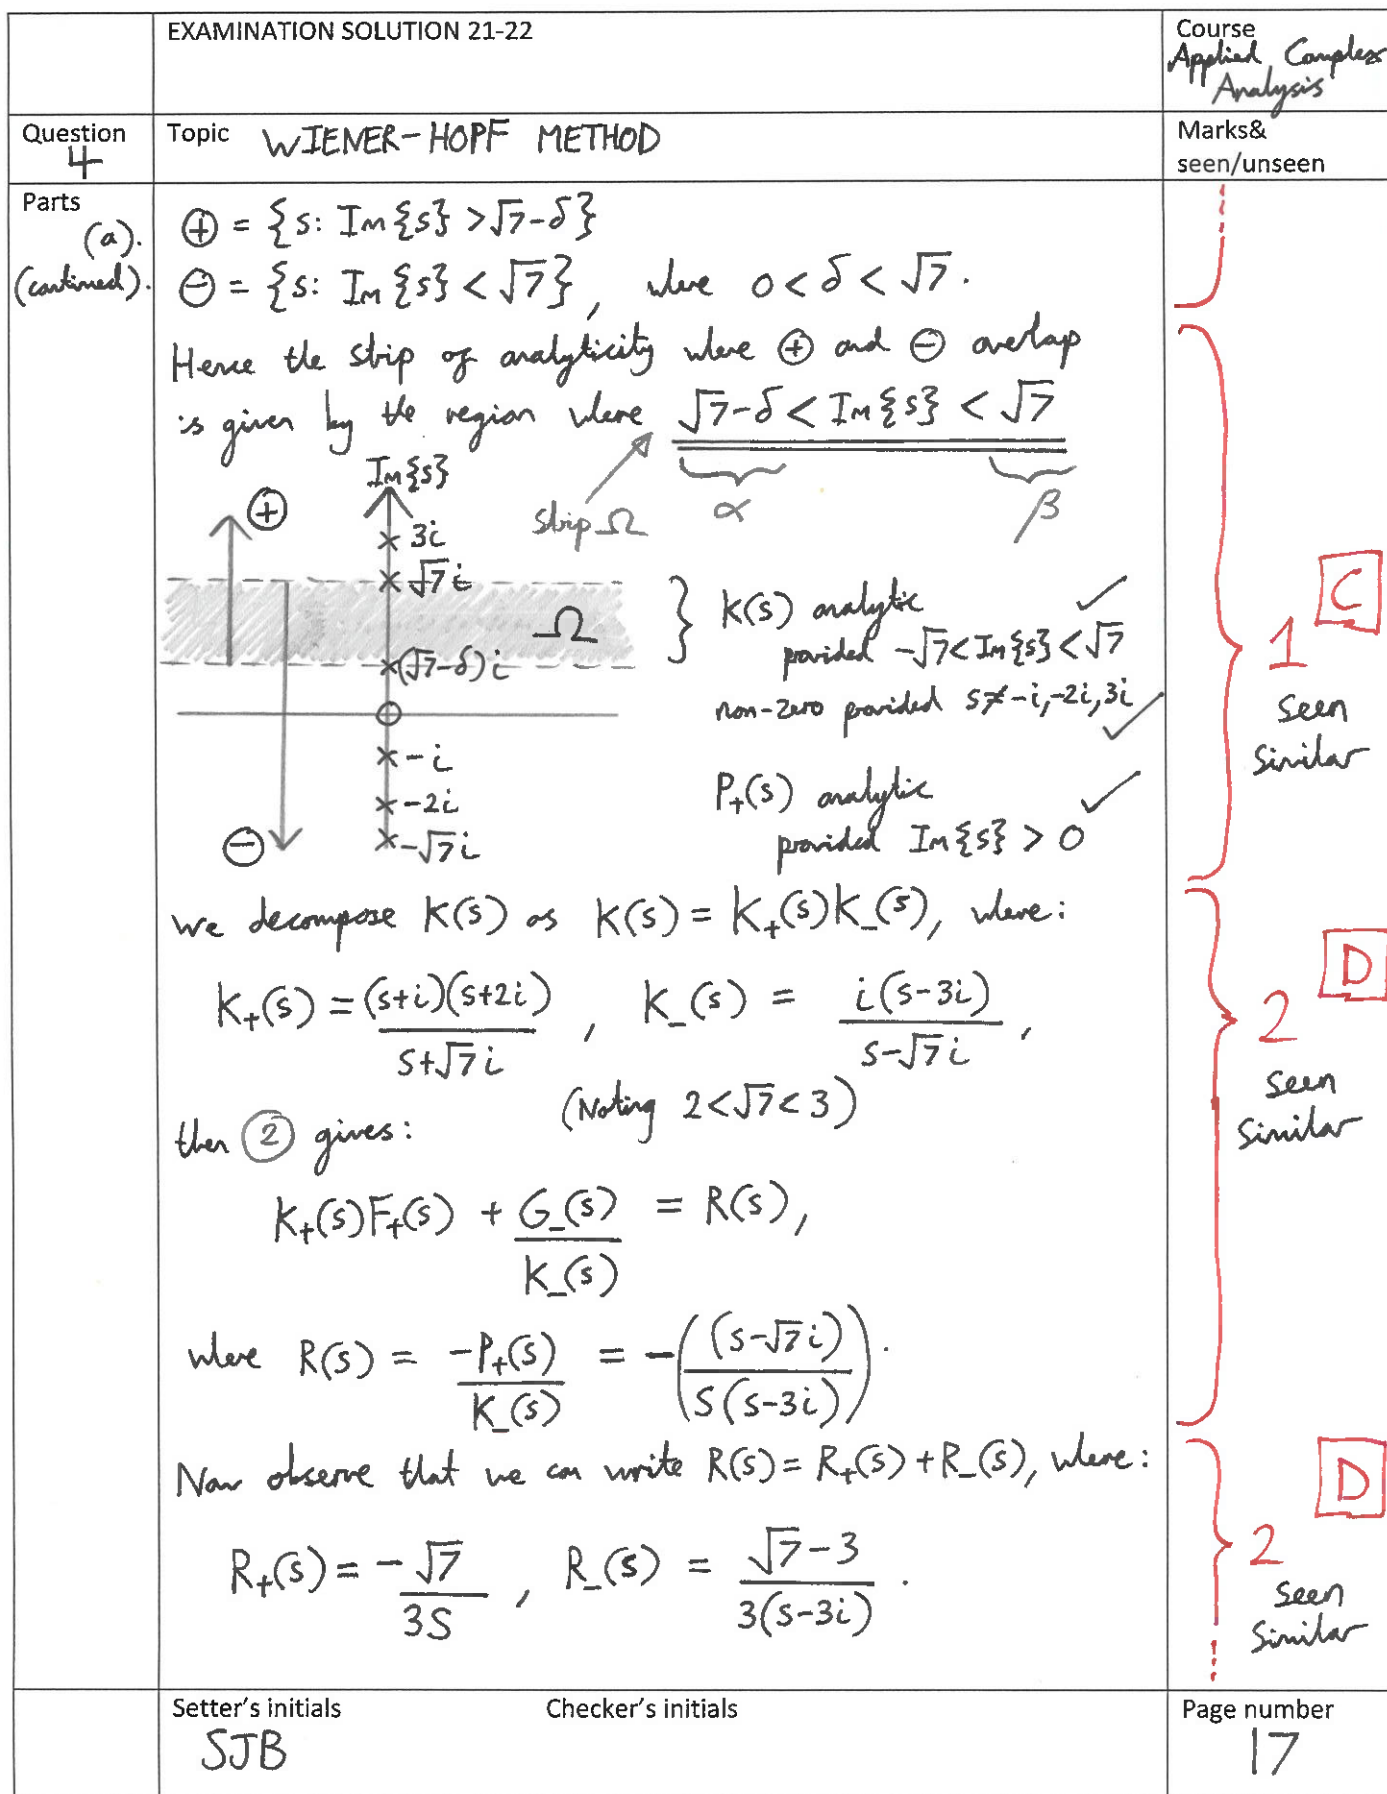 EXAMINATION SOLUTION 21-22
Course
Applied Complex
Analysis
Question
4
Topic WIENER-HOPF METHOD
Marks&
seen/unseen
Parts
(a).
(continued).
⊕ = {s: Im{s} > √7-δ}
⊖ = {s: Im{s} < √7}, where 0 < δ < √7.
Hence the strip of analyticity where ⊕ and ⊖ overlap
is given by the region where √7-δ < Im{s} < √7
strip Ω
α
β
Im{s}
⊕
3i
√7i
Ω
(√7-δ)i
-i
-2i
-√7i
⊖
} K(s) analytic ✓
provided -√7 < Im{s} < √7
non-zero provided s≠-i,-2i,3i ✓
P₊(s) analytic ✓
provided Im{s} > 0
1
C
Seen
Similar
We decompose K(s) as K(s) = K₊(s)K₋(s), where:
K₊(s) = (s+i)(s+2i)/(s+√7i), K₋(s) = i(s-3i)/(s-√7i),
(Noting 2<√7<3)
then ② gives:
K₊(s)F₊(s) + G₋(s)/K₋(s) = R(s),
where R(s) = -P₊(s)/K₋(s) = -((s-√7i)/(s(s-3i))).
2
D
Seen
Similar
Now observe that we can write R(s) = R₊(s) + R₋(s), where:
R₊(s) = -√7/3s, R₋(s) = (√7-3)/(3(s-3i)).
2
D
Seen
Similar
Setter's initials
SJB
Checker's initials
Page number
17